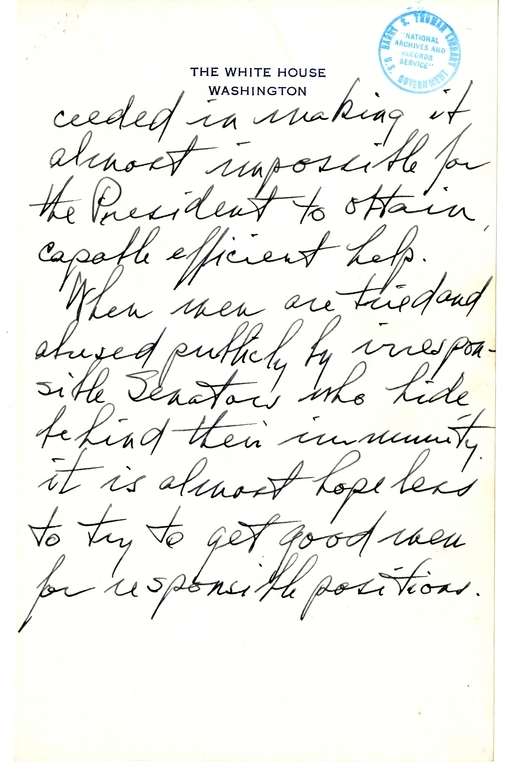 THE WHITE HOUSE
WASHINGTON
HARRY S. TRUMAN LIBRARY
"NATIONAL
ARCHIVES AND
RECORDS
SERVICE"
U.S. GOVERNMENT
ceeded in making it
almost impossible for
the President to obtain
capable efficient help.
When men are tried and
abused publicly by irrespon-
sible Senators who hide
behind their immunity
it is almost hopeless
to try to get good men
for responsible positions.